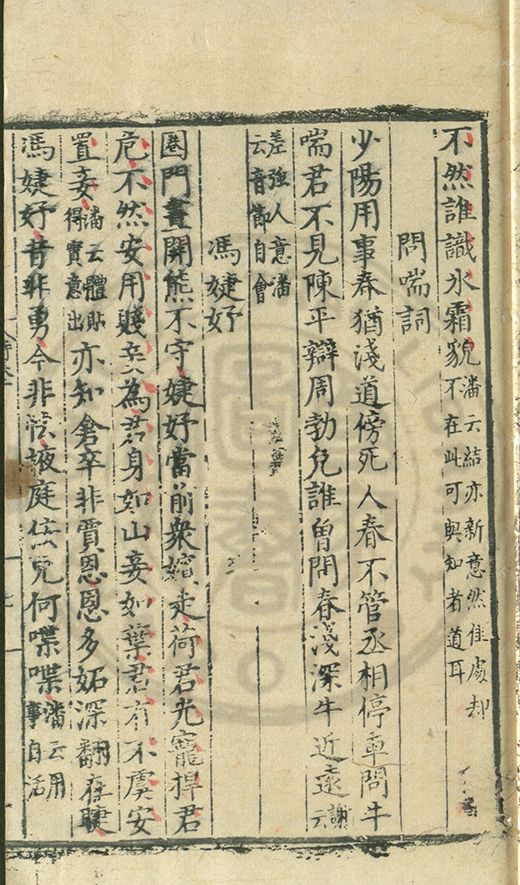 不然誰識氷霜貌潘云結亦新意然佳處却不在此可與知者道耳
問喘詞
少陽用事春猶淺道傍死人春不管丞相停車問牛
喘君不見陳平辯周勃兒誰曾問春淺深牛近遠謝云
差強人意潘云音節自會
馮婕妤
圈門晝開熊不守婕妤當前衆婠走荷君光寵捍君
危不然安用賤妾為君身如山妾如葉君有不虞安
置妾潘云體貼得實意出亦知倉卒非賈恩恩多妬深翻
馮婕妤昔非勇今非怯掖庭
何喋喋潘云用事自活